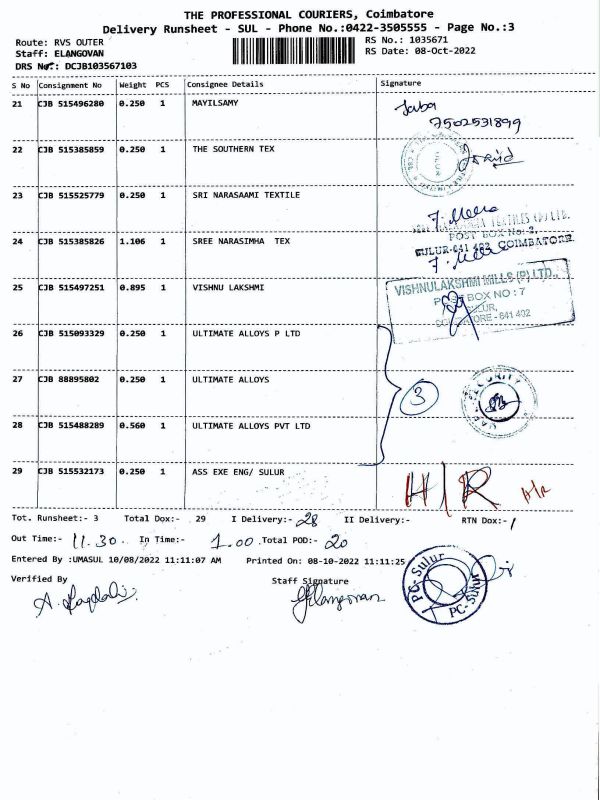 THE PROFESSIONAL COURIERS, Coimbatore
Delivery Runsheet - SUL - Phone No.:0422-3505555 - Page No.:3
Route: RVS OUTER
RS No.: 1035671
Staff: ELANGOVAN
RS Date: 08-Oct-2022
DRS No: DCJB103567103
S No Consignment No Weight PCS Consignee Details Signature
21 CJB 515496280 0.250 1 MAYILSAMY
7502531899
22 CJB 515385859 0.250 1 THE SOUTHERN TEX
SULUR
23 CJB 515525779 0.250 1 SRI NARASAAMI TEXTILE
J. Meera
TEXTILES (P) LTD.
POST BOX No: 2,
24 CJB 515385826 1.106 1 SREE NARASIMHA TEX
SULUR-641 402 COIMBATORE
25 CJB 515497251 0.895 1 VISHNU LAKSHMI
VISHNULAKSHMI MILLS (P) LTD.,
POST BOX NO : 7
SULUR,
COIMBATORE - 641 402
26 CJB 515093329 0.250 1 ULTIMATE ALLOYS P LTD
27 CJB 88895802 0.250 1 ULTIMATE ALLOYS
3
SECURITY
28 CJB 515488289 0.560 1 ULTIMATE ALLOYS PVT LTD
29 CJB 515532173 0.250 1 ASS EXE ENG/ SULUR
H/R H/R
Tot. Runsheet:- 3 Total Dox:- 29 I Delivery:- 28 II Delivery:- RTN Dox:- 1
Out Time:- 11.30. In Time:- 1.00 Total POD:- 20
Entered By :UMASUL 10/08/2022 11:11:07 AM Printed On: 08-10-2022 11:11:25
Verified By
Staff Signature
Elangovan
PC-Sulur
PC-Sulur